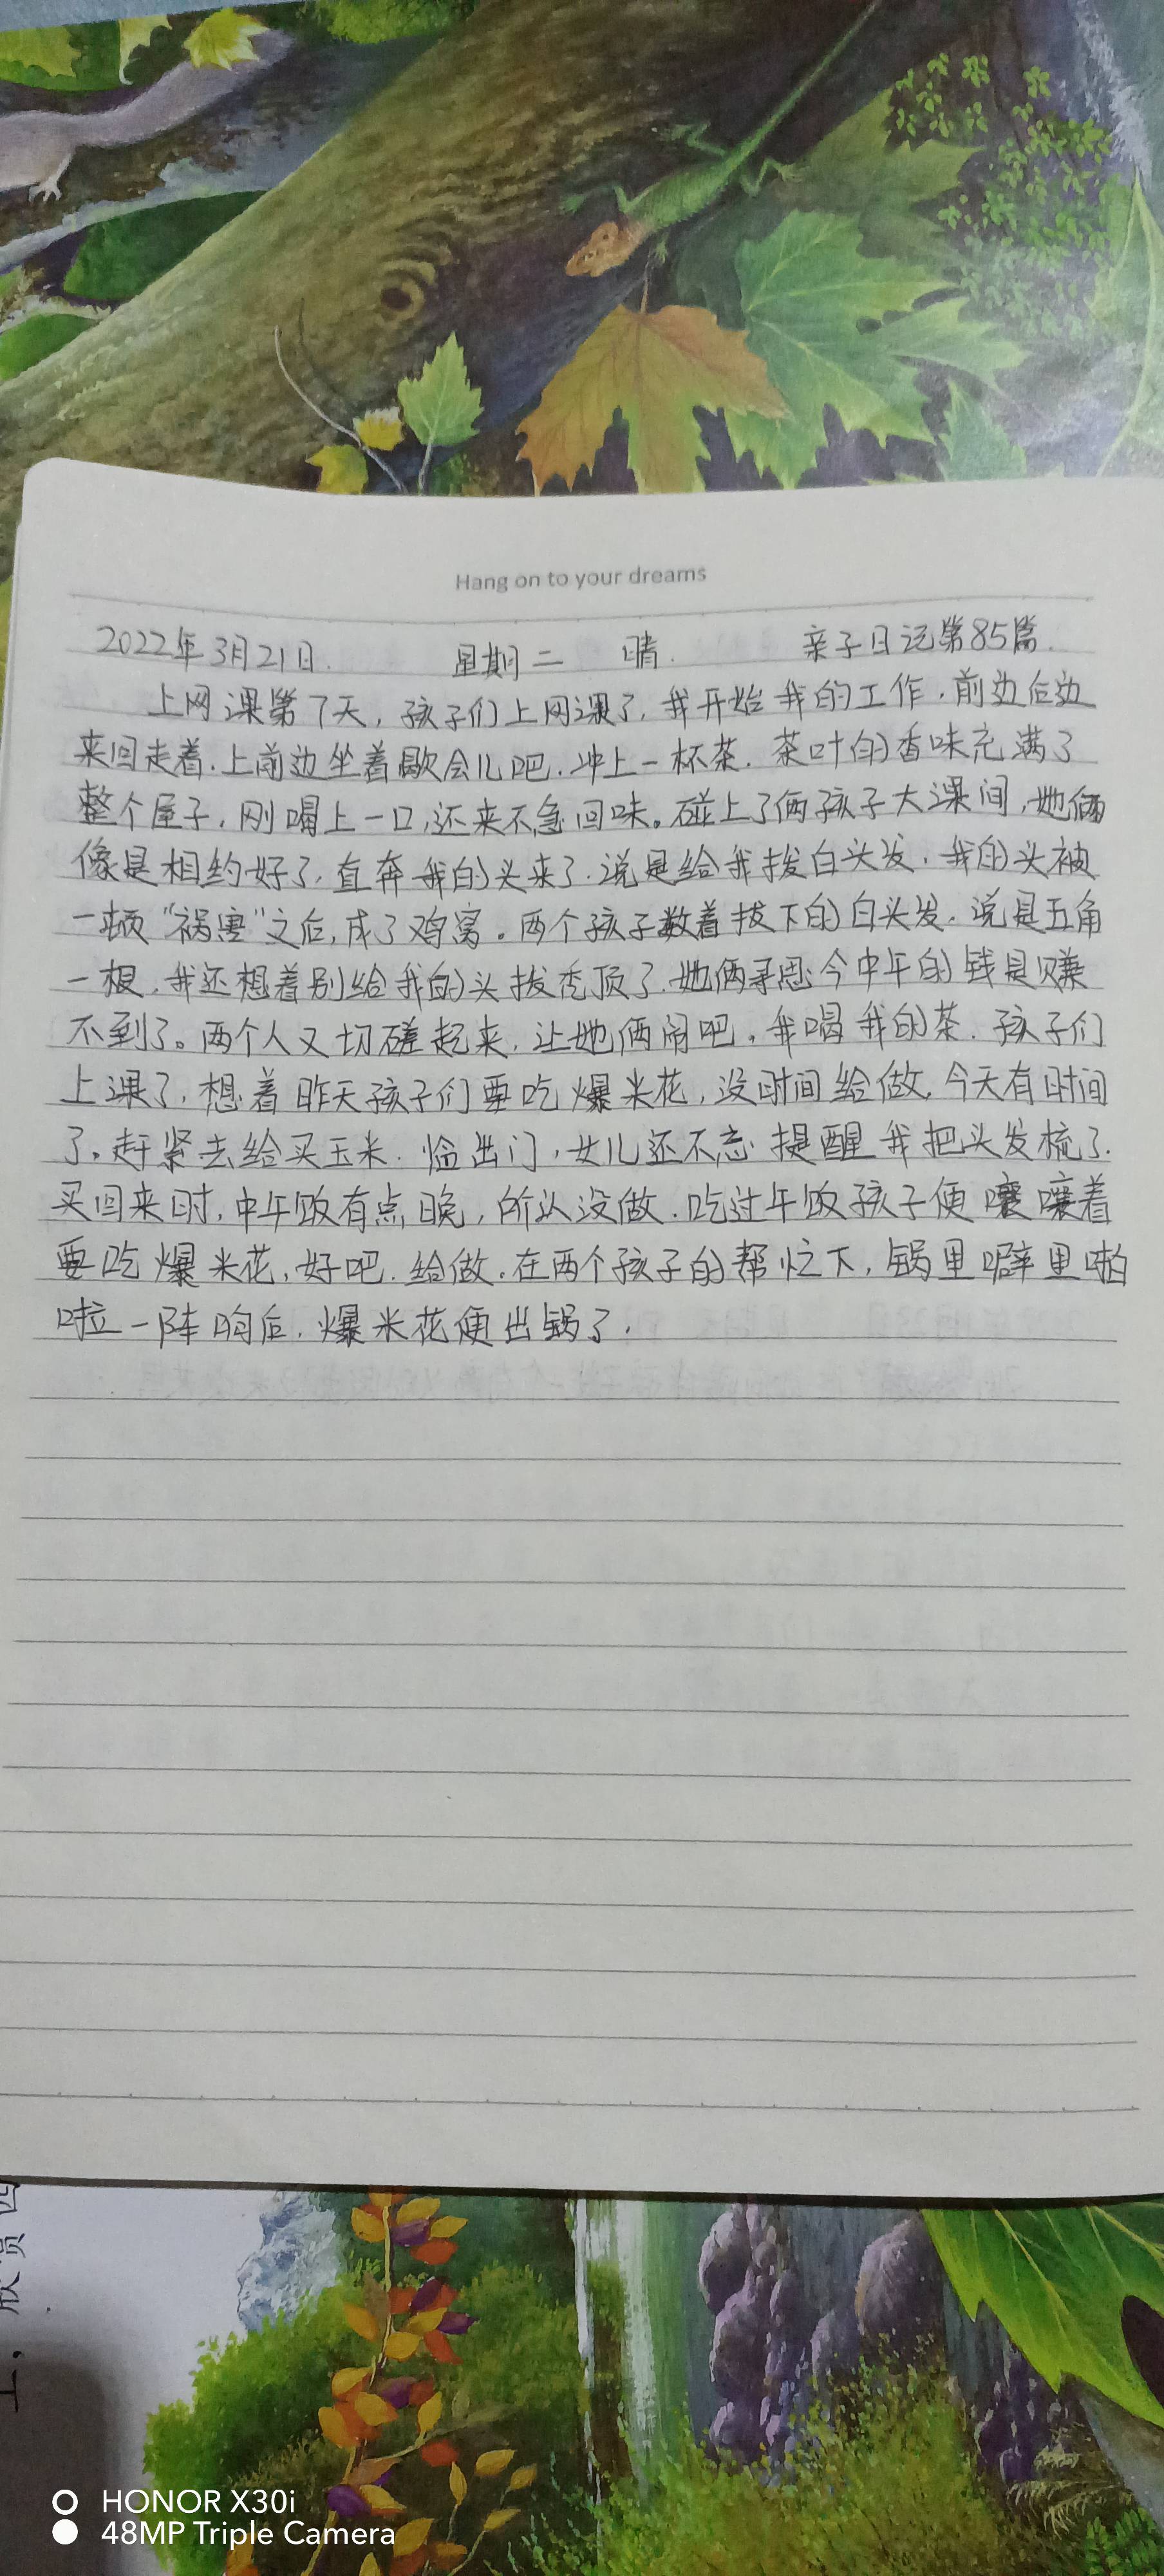 Hang on to your dreams
2022年3月21日. 星期二 晴. 亲子日记第85篇.
上网课第7天,孩子们上网课了,我开始我的工作.前边后边
来回走着.上前边坐着歇会儿吧.冲上一杯茶.茶叶的香味充满了
整个屋子,刚喝上一口,还来不急回味。碰上了俩孩子大课间,她俩
像是相约好了,直奔我的头来了.说是给我拨白头发,我的头被
一顿“祸害”之后,成了鸡窝。两个孩子数着拔下的白头发.说是五角
一根,我还想着别给我的头拔秃顶了.她俩寻思今中午的钱是赚
不到了。两个人又切磋起来,让她俩闹吧,我喝我的茶.孩子们
上课了,想着昨天孩子们要吃爆米花,没时间给做,今天有时间
了,赶紧去给买玉米.临出门,女儿还不忘提醒我把头发梳了.
买回来时,中午饭有点晚,所以没做.吃过午饭孩子便嚷嚷着
要吃爆米花,好吧.给做.在两个孩子的帮忙下,锅里噼里啪
啦一阵响后.爆米花便出锅了.
欣赏四
上,
HONOR X30i
48MP Triple Camera